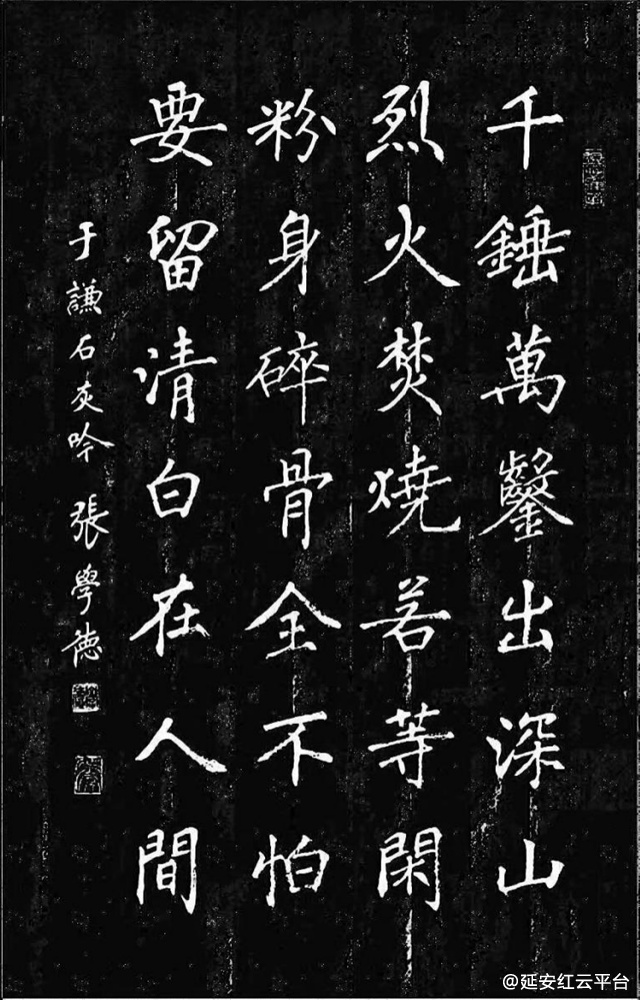 千錘萬鑿出深山
烈火焚燒若等閑
粉身碎骨全不怕
要留清白在人間
于謙石灰吟 張學德
@延安红云平台